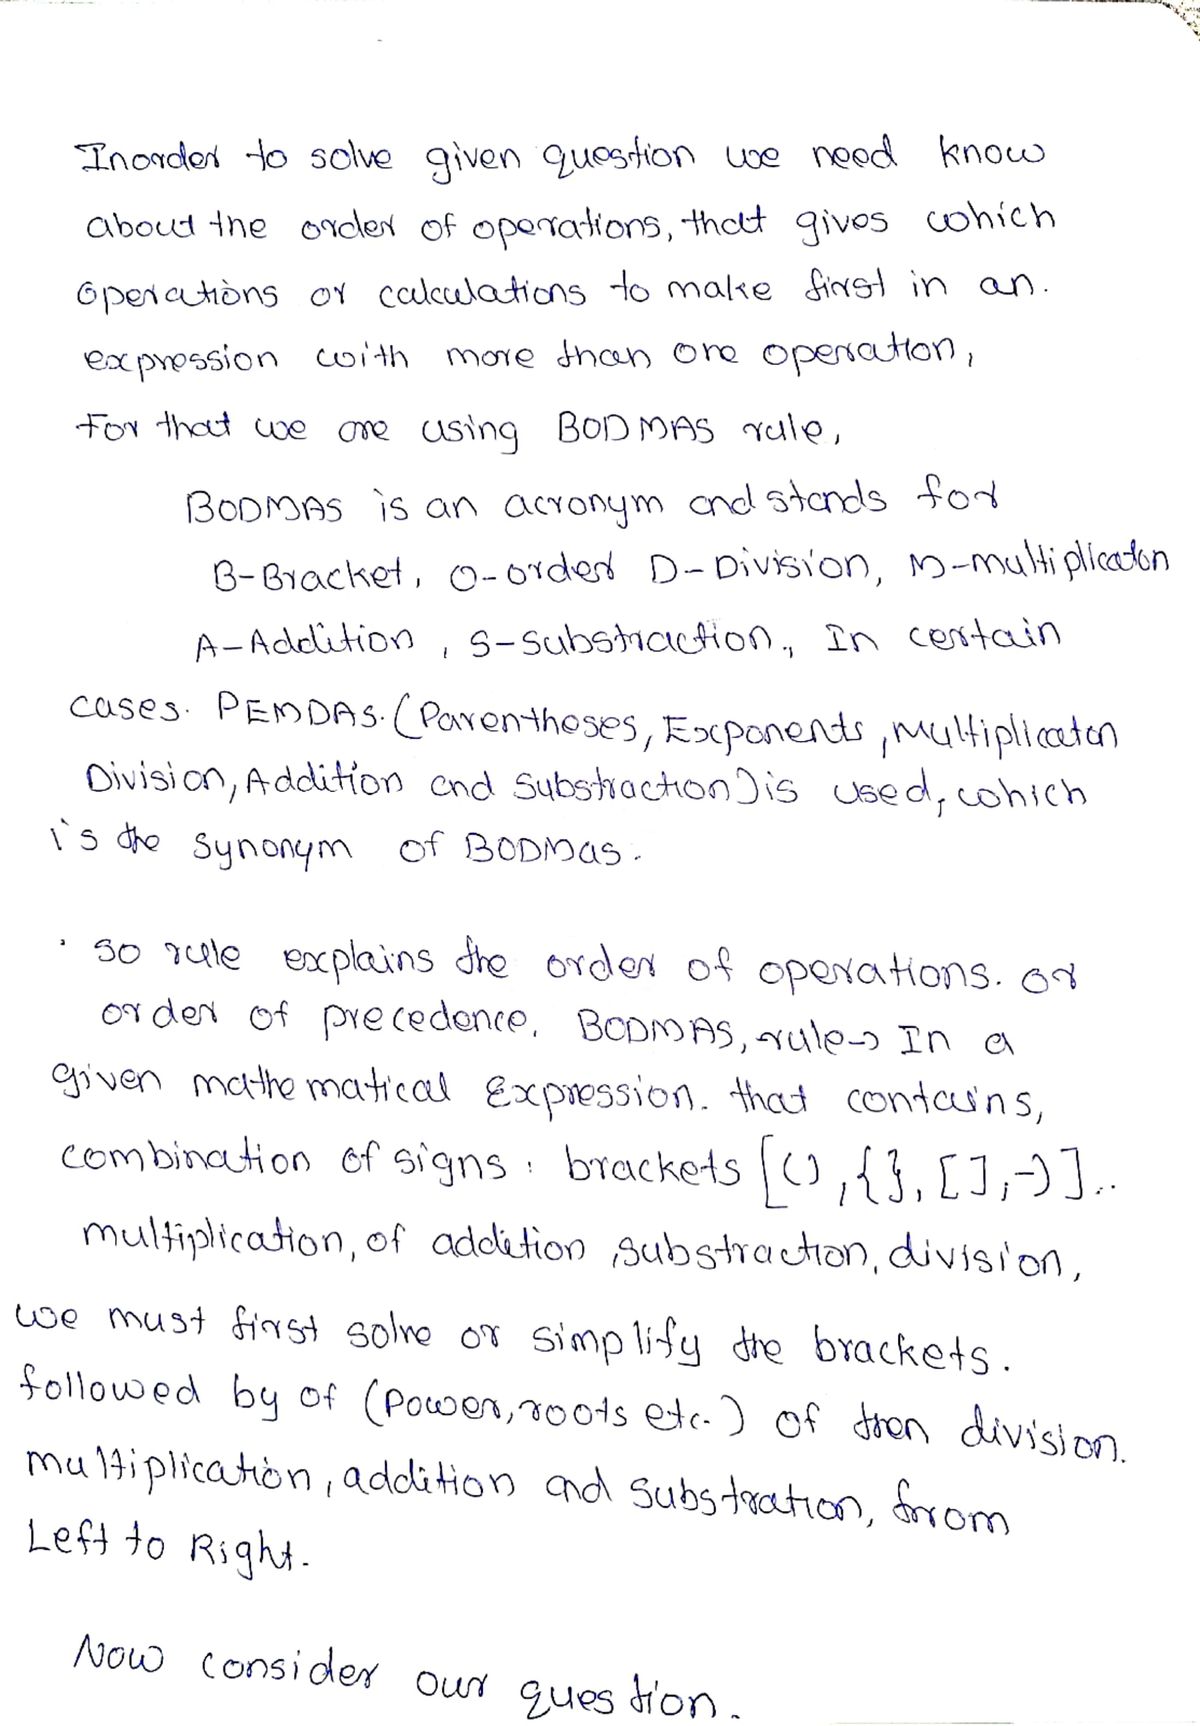 Inorder to solve given question we need know
about the order of operations, that gives which
operations or calculations to make first in an.
expression with more than one operation,
For that we are using BODMAS rule,
BODMAS is an acronym and stands for
B-Bracket, O-order D-Division, M-multiplicaton
A-Addition, S-Substraction., In certain
cases. PEMDAS. (Parentheses, Exponents, Multiplicaton
Division, Addition and Substraction) is used, which
is the synonym of BODMas.
. so rule explains the order of operations. or
order of precedence. BODMAS, rule→ In a
given mathematical Expression. that contains,
combination of signs : brackets [(), {}, [], -)]..
multiplication, of addition, substraction, division,
we must first solve or simplify the brackets.
followed by of (Power, roots etc.) of then division.
multiplication, addition and Substration, from
Left to Right.
Now consider our question.